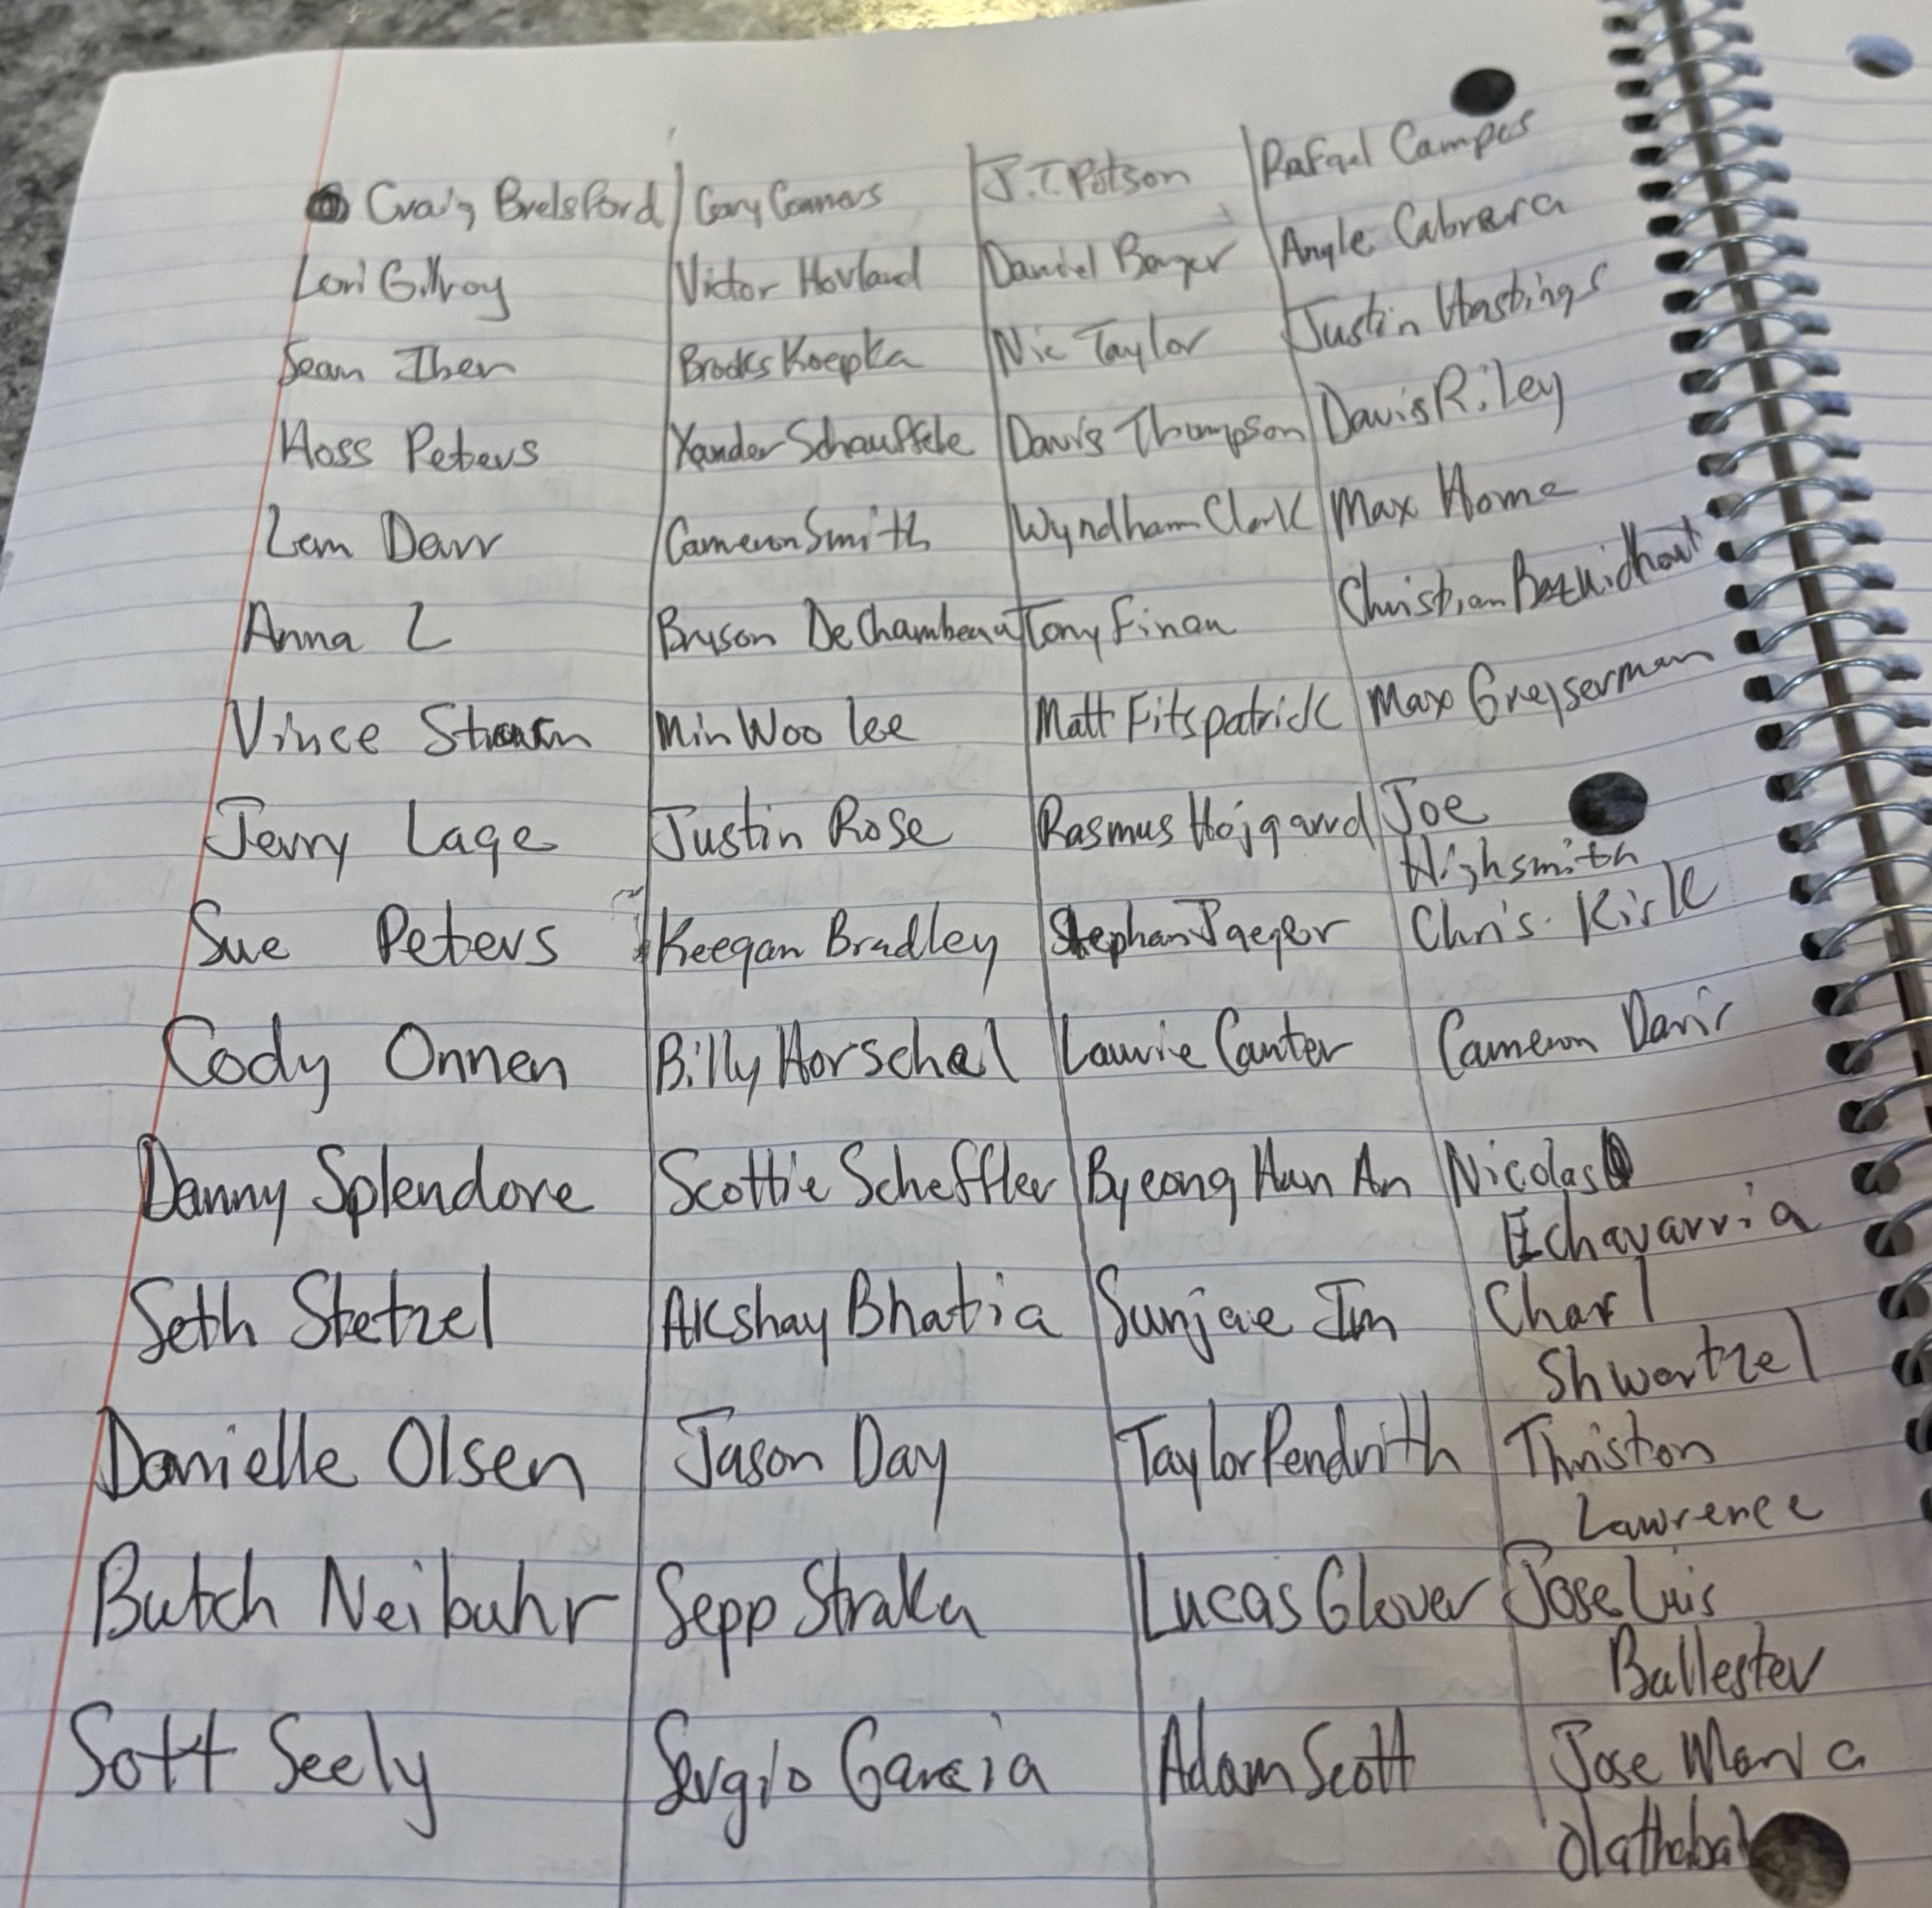 Craig Brelsford Gary Conners J.T. Potson Rafael Campos
Lori Gillroy Victor Hovland Daniel Berger Angle Cabrera
Sean Iben Brooks Koepka Nic Taylor Justin Hastings
Hoss Peters Xander Schauffele Davis Thompson Davis Riley
Lem Darr Cameron Smith Wyndham Clark Max Home
Anna L Bryson DeChambeau Tony Finau Christian Bezuidhout
Vince Min Woo Lee Matt Fitspatrick Max Greyserman
Jerry Lage Justin Rose Rasmus Hojgarrd Joe
Highsmith
Sue Peters Keegan Bradley Stephan Jaeger Chris Kirk
Cody Onnen Billy Horschel Laurie Canter Cameron Davis
Danny Splendore Scottie Scheffler Byeong Hun An Nicolas
Echavarria
Seth Stetzel Akshay Bhatia Sunjae Im Charl
Shwartzel
Danielle Olsen Jason Day Taylor Pendrith Thriston
Lawrence
Butch Neibuhr Sepp Straka Lucas Glover Jose Luis
Ballester
Sott Seely Sergio Garcia Adam Scott Jose Maria
Olathabal